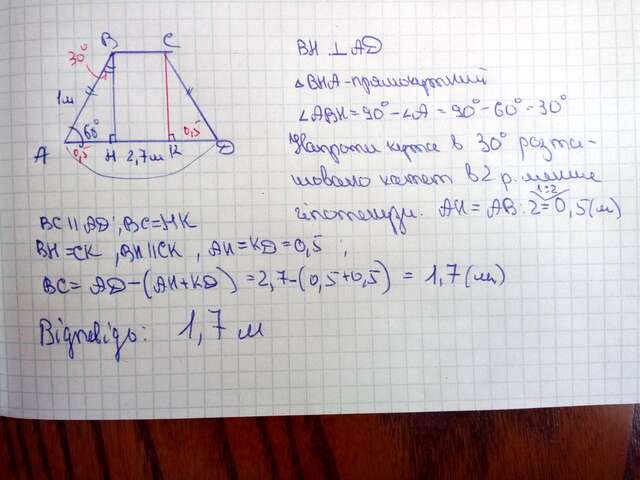 A
B
C
D
H
K
1м
30°
60°
0,5
2,7м
0,5
BH ⊥ AD
△BHA - прямокутний
∠ABH = 90° - ∠A = 90° - 60° = 30°
навпроти кута в 30° розта-
шовано катет в 2 р. менше
гіпотенузи. AH = AB : 2 = 0,5 (м)
1:2
BC || AD; BC = HK
BH = CK, BH || CK, AH = KD = 0,5;
BC = AD - (AH + KD) = 2,7 - (0,5 + 0,5) = 1,7 (м)
Відповідь: 1,7 м